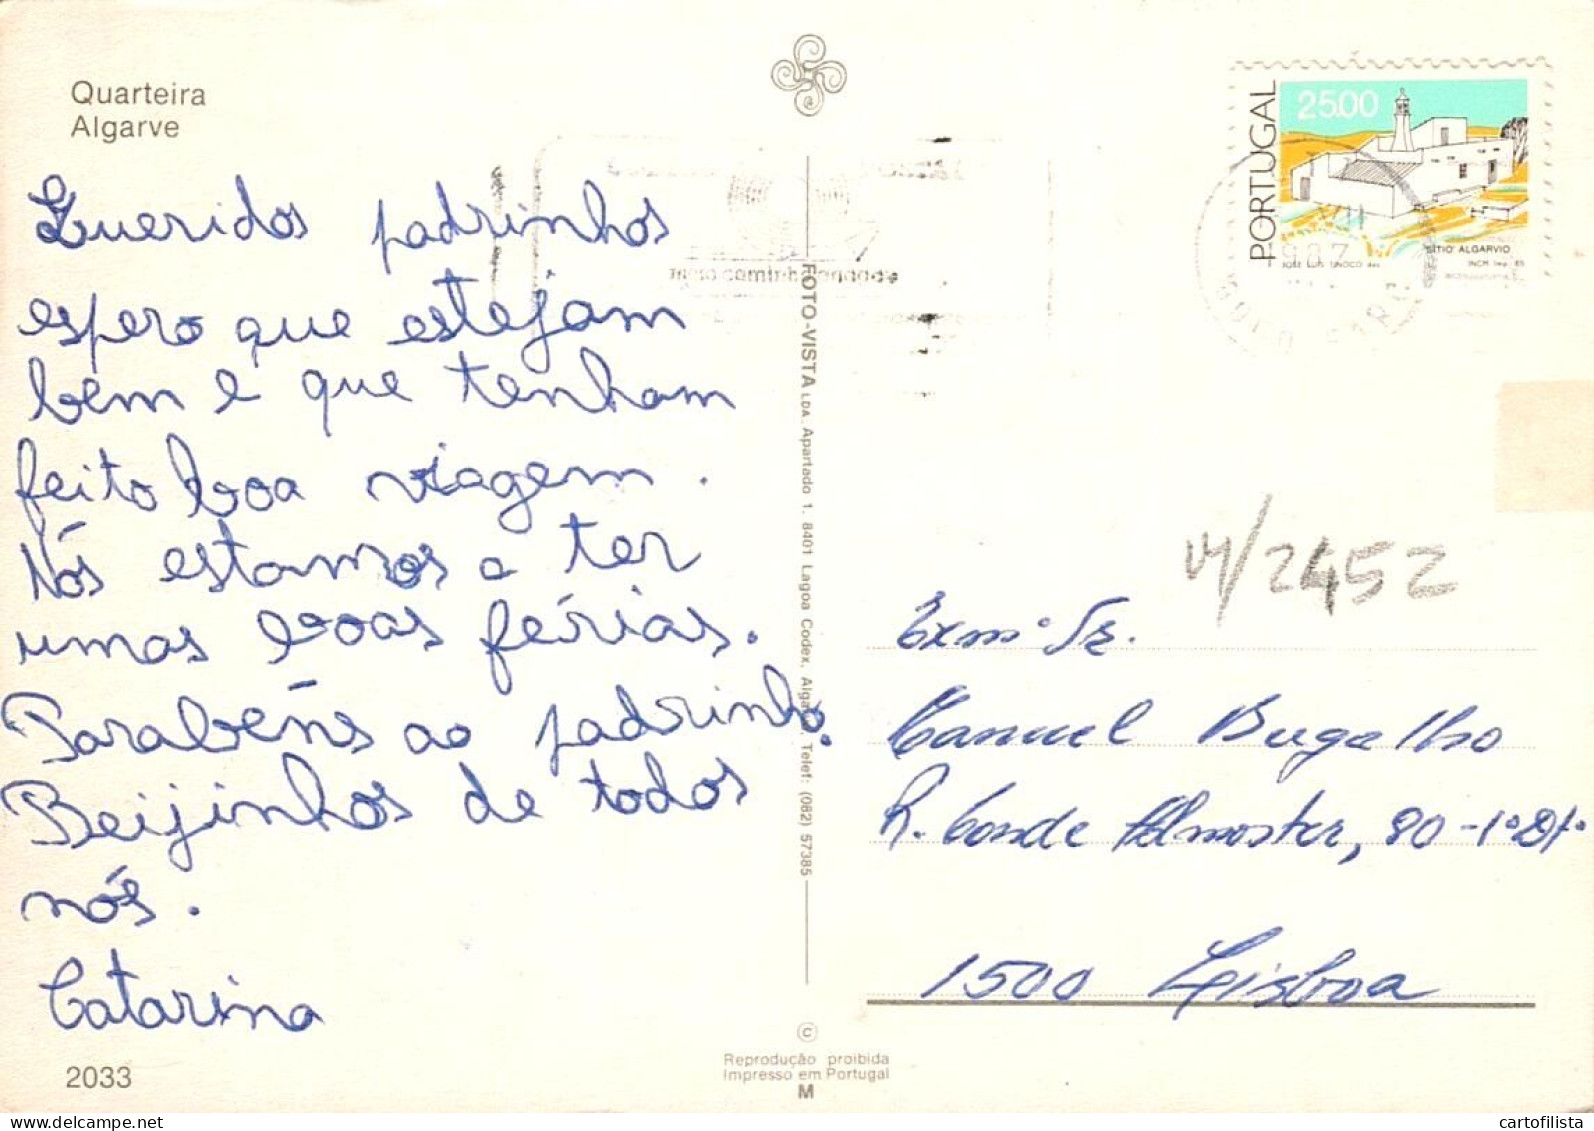 Quarteira
Algarve
Queridos padrinhos
espero que estejam
bem e que tenham
feito boa viagem.
Nós estamos a ter
umas boas férias.
Parabéns ao padrinho.
Beijinhos de todos
nós.
Catarina
2033
FOTO-VISTA LDA. Apartado 1. 8401 Lagoa Codex. Algarve Telef: (082) 57385
©
Reprodução proibida
Impresso em Portugal
M
PORTUGAL
25.00
SÍTIO ALGARVIO
INCM Imp. 85
1987
14/2452
Exmº Sr.
Manuel Bugalho
R. Conde Almoster, 90-1º Dtº
1500 Lisboa
cartofilista